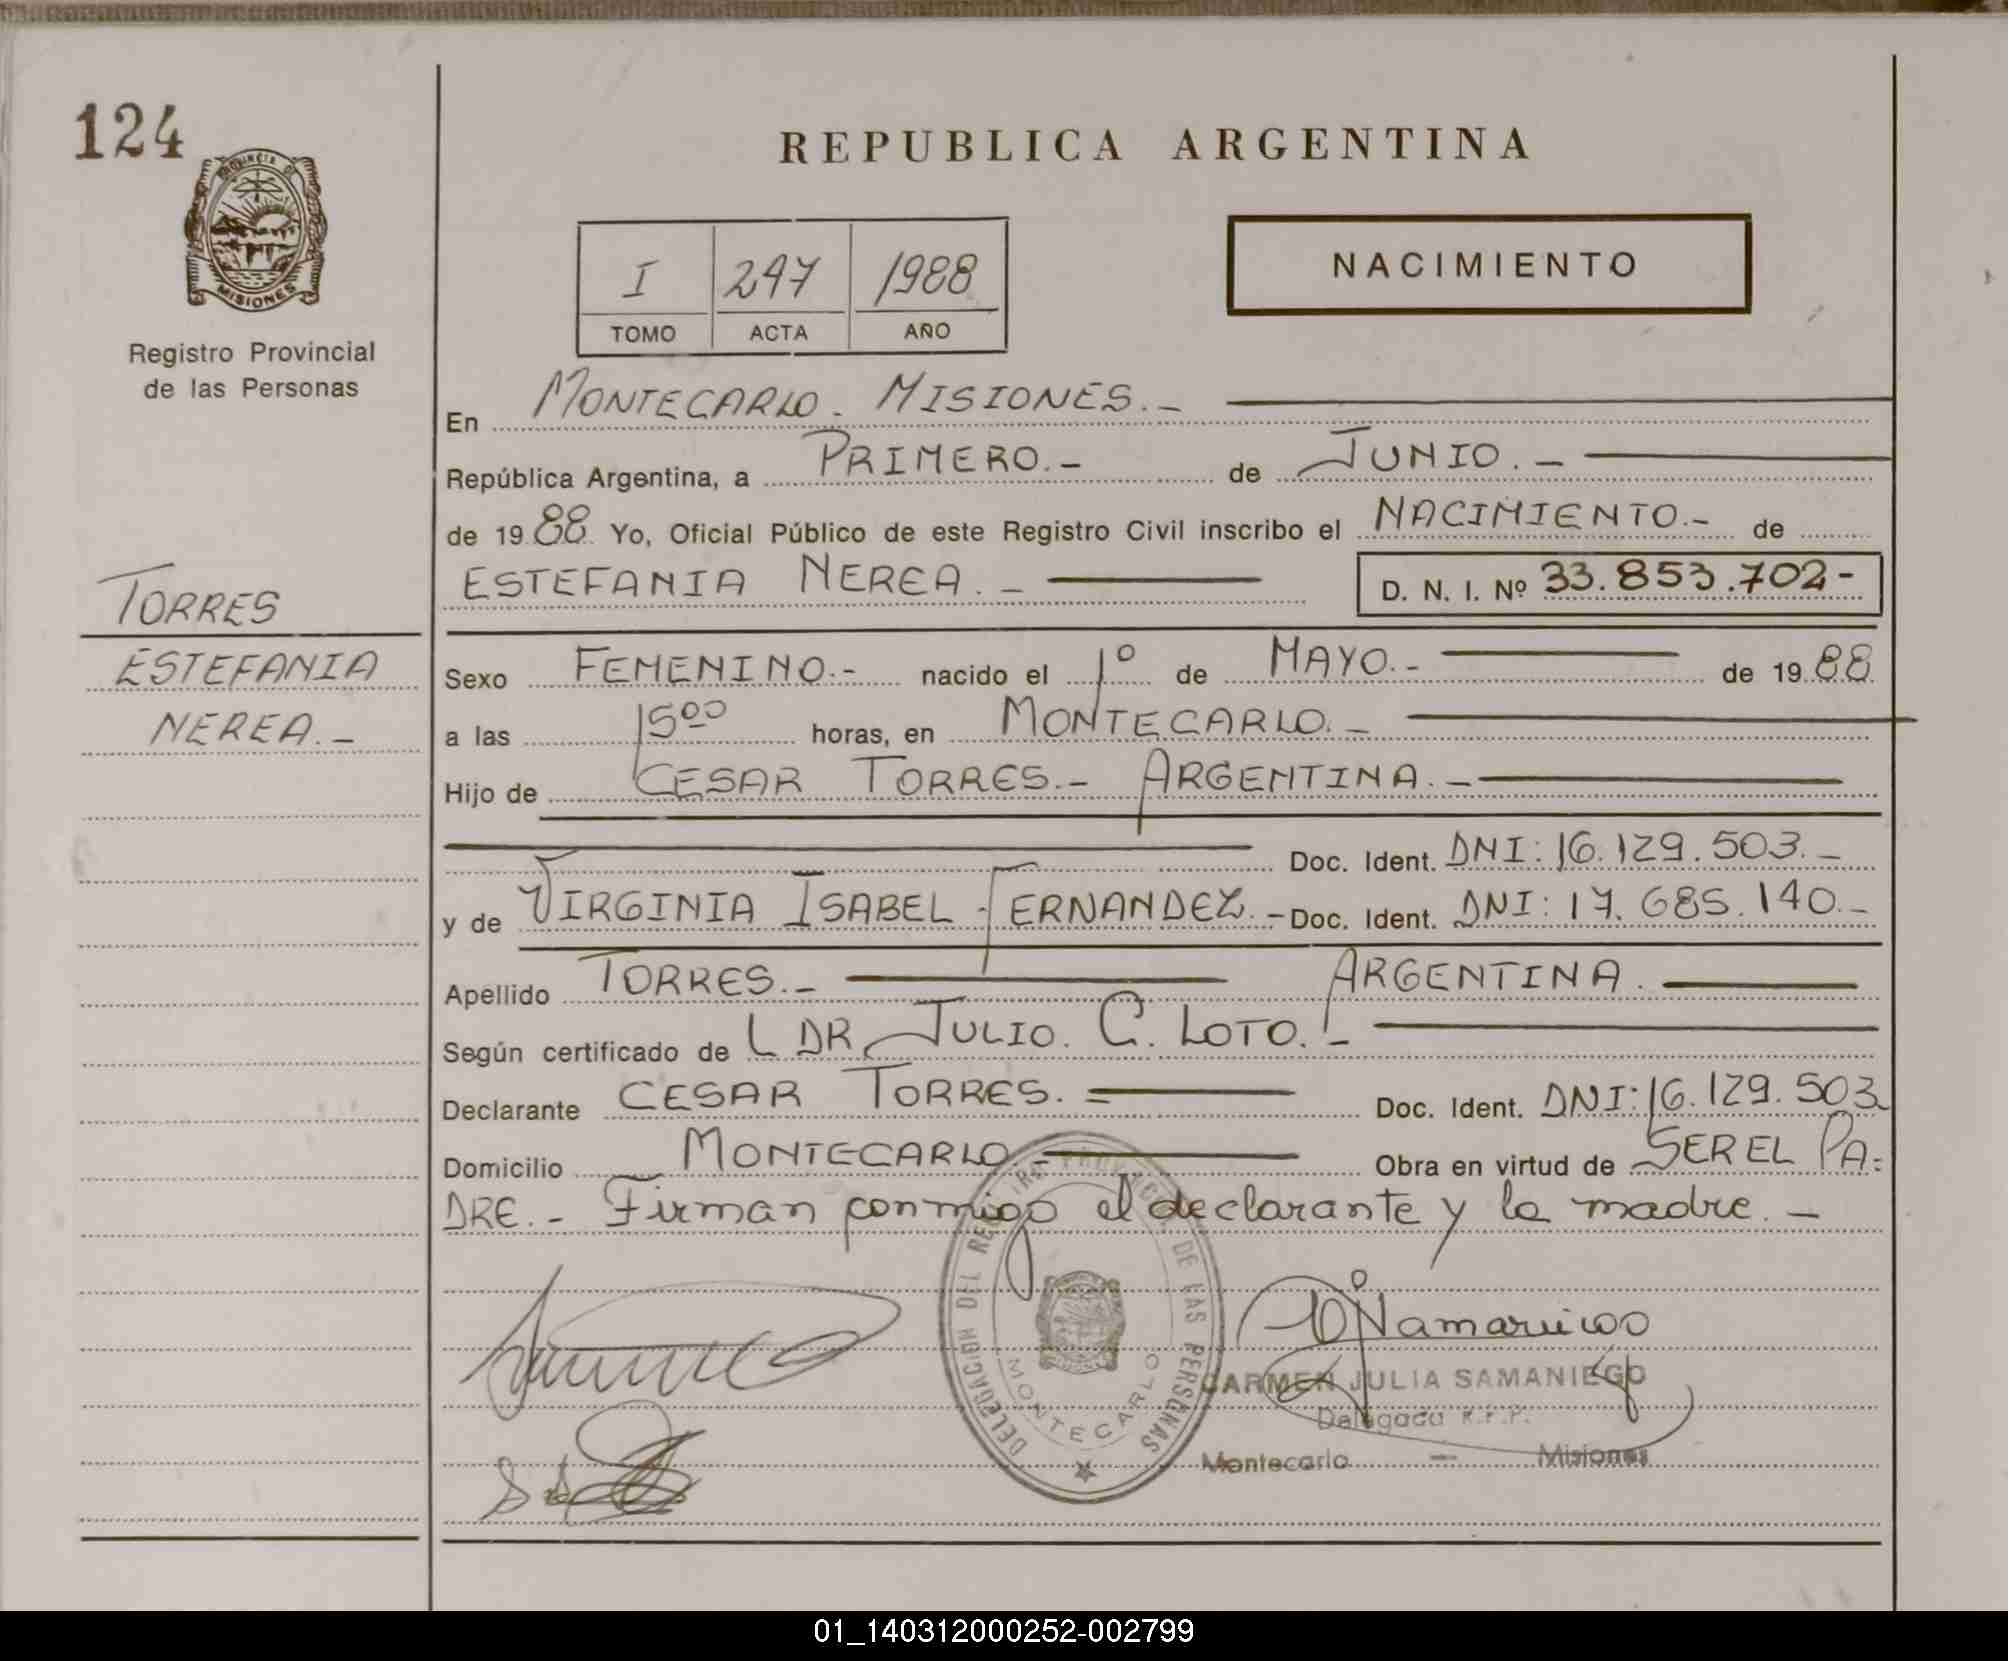 124
PROVINCIA DE
MISIONES
Registro Provincial
de las Personas
TORRES
ESTEFANIA
NEREA.-
REPUBLICA ARGENTINA
I 247 1988
TOMO ACTA AÑO
NACIMIENTO
En MONTECARLO - MISIONES.-
República Argentina, a PRIMERO.- de JUNIO.-
de 1988 Yo, Oficial Público de este Registro Civil inscribo el NACIMIENTO.- de
ESTEFANIA NEREA.- D. N. I. Nº 33.853.702-
Sexo FEMENINO.- nacido el 1º de MAYO.- de 1988
a las 15⁰⁰ horas, en MONTECARLO.-
Hijo de CESAR TORRES.- ARGENTINA.-
Doc. Ident. DNI: 16.129.503.-
y de VIRGINIA ISABEL FERNANDEZ.- Doc. Ident. DNI: 17.685.140.-
Apellido TORRES.- ARGENTINA.
Según certificado de L DR JULIO. C. LOTO.-
Declarante CESAR TORRES.= Doc. Ident. DNI: 16.129.503
Domicilio MONTECARLO.- Obra en virtud de SER EL PA=
DRE.- Firman conmigo el declarante y la madre.-
DELEGACION DEL REGISTRO PROVINCIAL DE LAS PERSONAS
MONTECARLO
CARMEN JULIA SAMANIEGO
Delegada R.P.P.
Montecarlo - Misiones
01_140312000252-002799